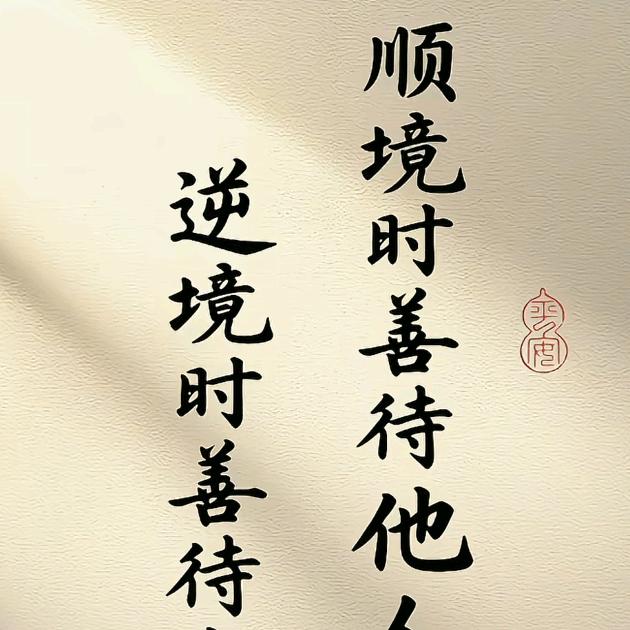 顺境时善待他
逆境时善待
平安